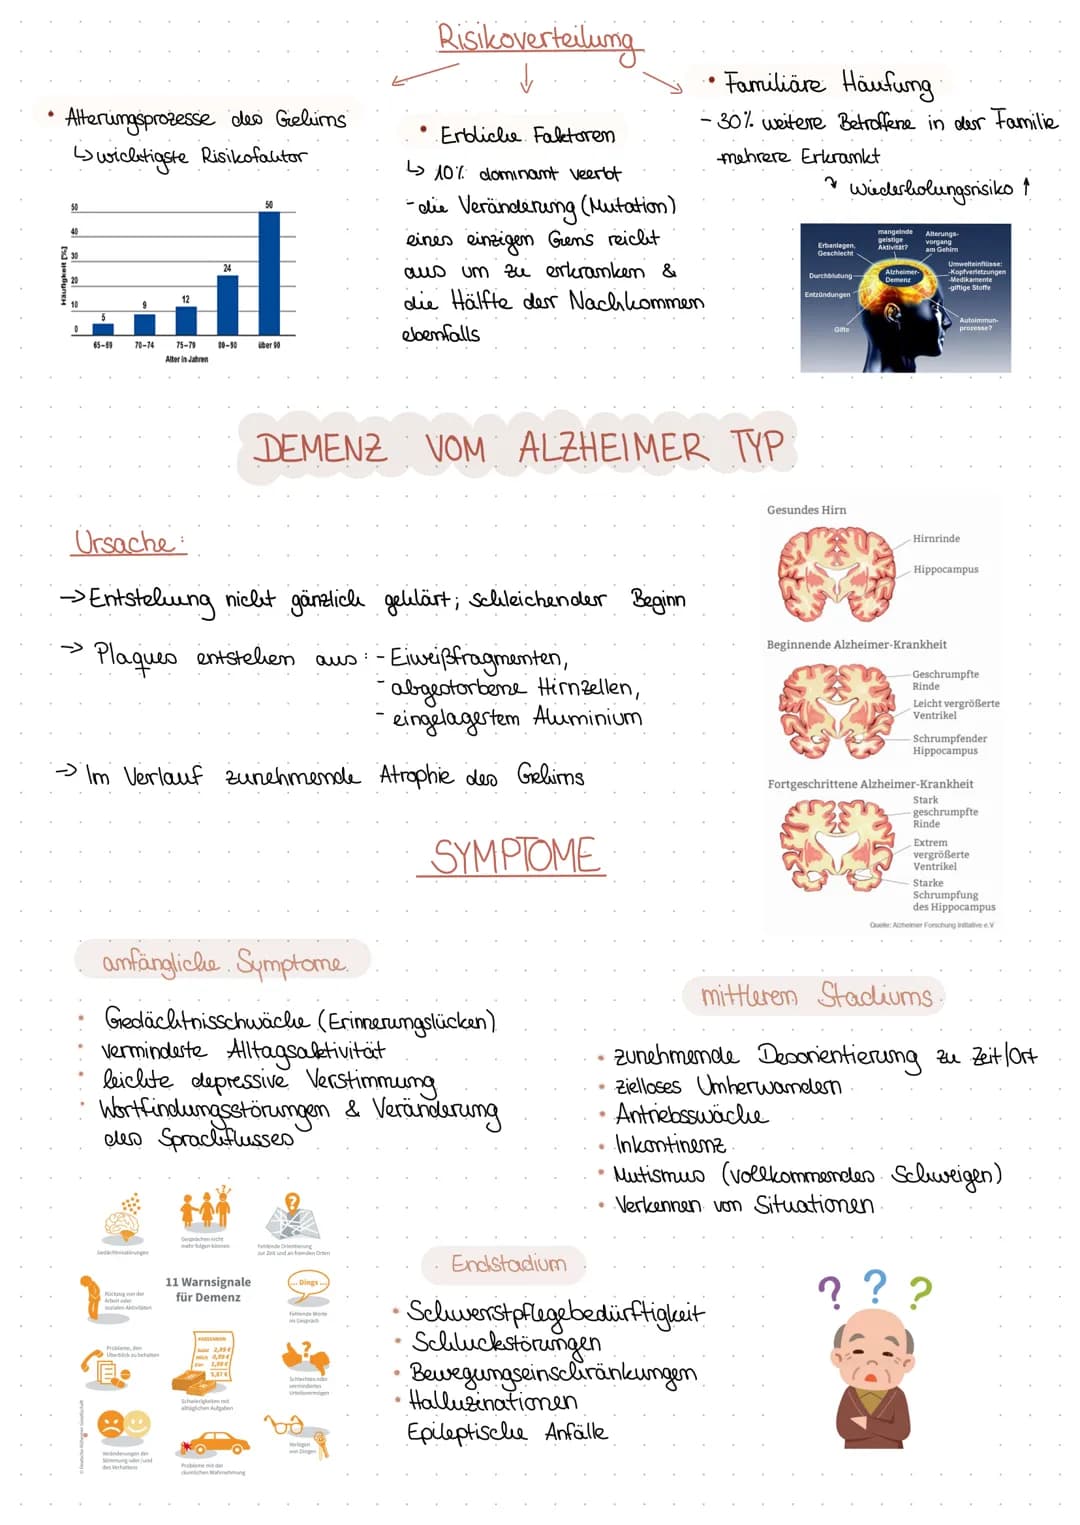 Risikoverteilung
• Alterungsprozesse des Gehirns
↳ wichtigste Risikofaktor
Häufigkeit [%]
50
40
30
20
10
0
5
9
12
24
50
65-69
70-74
75-79
80-90
über 90
Alter in Jahren
• Erbliche Faktoren
↳ 10% dominant veerbt
- die Veränderung (Mutation)
eines einzigen Gens reicht
aus um zu erkranken &
die Hälfte der Nachkommen
ebenfalls
• Familiäre Häufung
- 30% weitere Betroffene in der Familie
-mehrere Erkrankt
↴ Wiederholungsrisiko ↑
Erbanlagen,
Geschlecht
mangelnde
geistige
Aktivität?
Alterungs-
vorgang
am Gehirn
Durchblutung
Alzheimer-
Demenz
Umwelteinflüsse:
-Kopfverletzungen
-Medikamente
-giftige Stoffe
Entzündungen
Gifte
Autoimmun-
prozesse?
DEMENZ VOM ALZHEIMER TYP
Ursache:
→ Entstehung nicht gänzlich geklärt; schleichender Beginn
→ Plaques entstehen aus: - Eiweißfragmenten,
- abgestorbene Hirnzellen,
- eingelagertem Aluminium
→ Im Verlauf zunehmende Atrophie des Gehirns
Gesundes Hirn
Hirnrinde
Hippocampus
Beginnende Alzheimer-Krankheit
Geschrumpfte
Rinde
Leicht vergrößerte
Ventrikel
Schrumpfender
Hippocampus
Fortgeschrittene Alzheimer-Krankheit
Stark
geschrumpfte
Rinde
Extrem
vergrößerte
Ventrikel
Starke
Schrumpfung
des Hippocampus
Quelle: Alzheimer Forschung Initiative e.V
SYMPTOME
anfängliche Symptome
• Gedächtnisschwäche (Erinnerungslücken)
• verminderte Alltagsaktivität
• leichte depressive Verstimmung
• Wortfindungsstörungen & Veränderung
des Sprachflusses
mittleren Stadiums
• zunehmende Desorientierung zu Zeit/Ort
• zielloses Umherwandern
• Antriebsswäche
• Inkontinenz
• Mutismus (vollkommendes Schweigen)
• Verkennen von Situationen
Endstadium
• Schwerstpflegebedürftigkeit
• Schluckstörungen
• Bewegungseinschränkungen
• Halluzinationen
Epileptische Anfälle
11 Warnsignale
für Demenz
Gedächtnisstörungen
?
Gesprächen nicht
mehr folgen können
?
Fehlende Orientierung
zur Zeit und an fremden Orten
Rückzug von der
Arbeit oder
sozialen Aktivitäten
... Dings ...
Fehlende Worte
im Gespräch
Probleme, den
Überblick zu behalten
KASSENBON
2,99 €
Milch 0,99 €
1,99 €
5,97 €
Schwierigkeiten mit
alltäglichen Aufgaben
?
Schlechtes oder
vermindertes
Urteilsvermögen
Veränderungen der
Stimmung oder/und
des Verhaltens
Probleme mit der
räumlichen Wahrnehmung
Verlegen
von Dingen
© Deutsche Alzheimer Gesellschaft
? ? ?